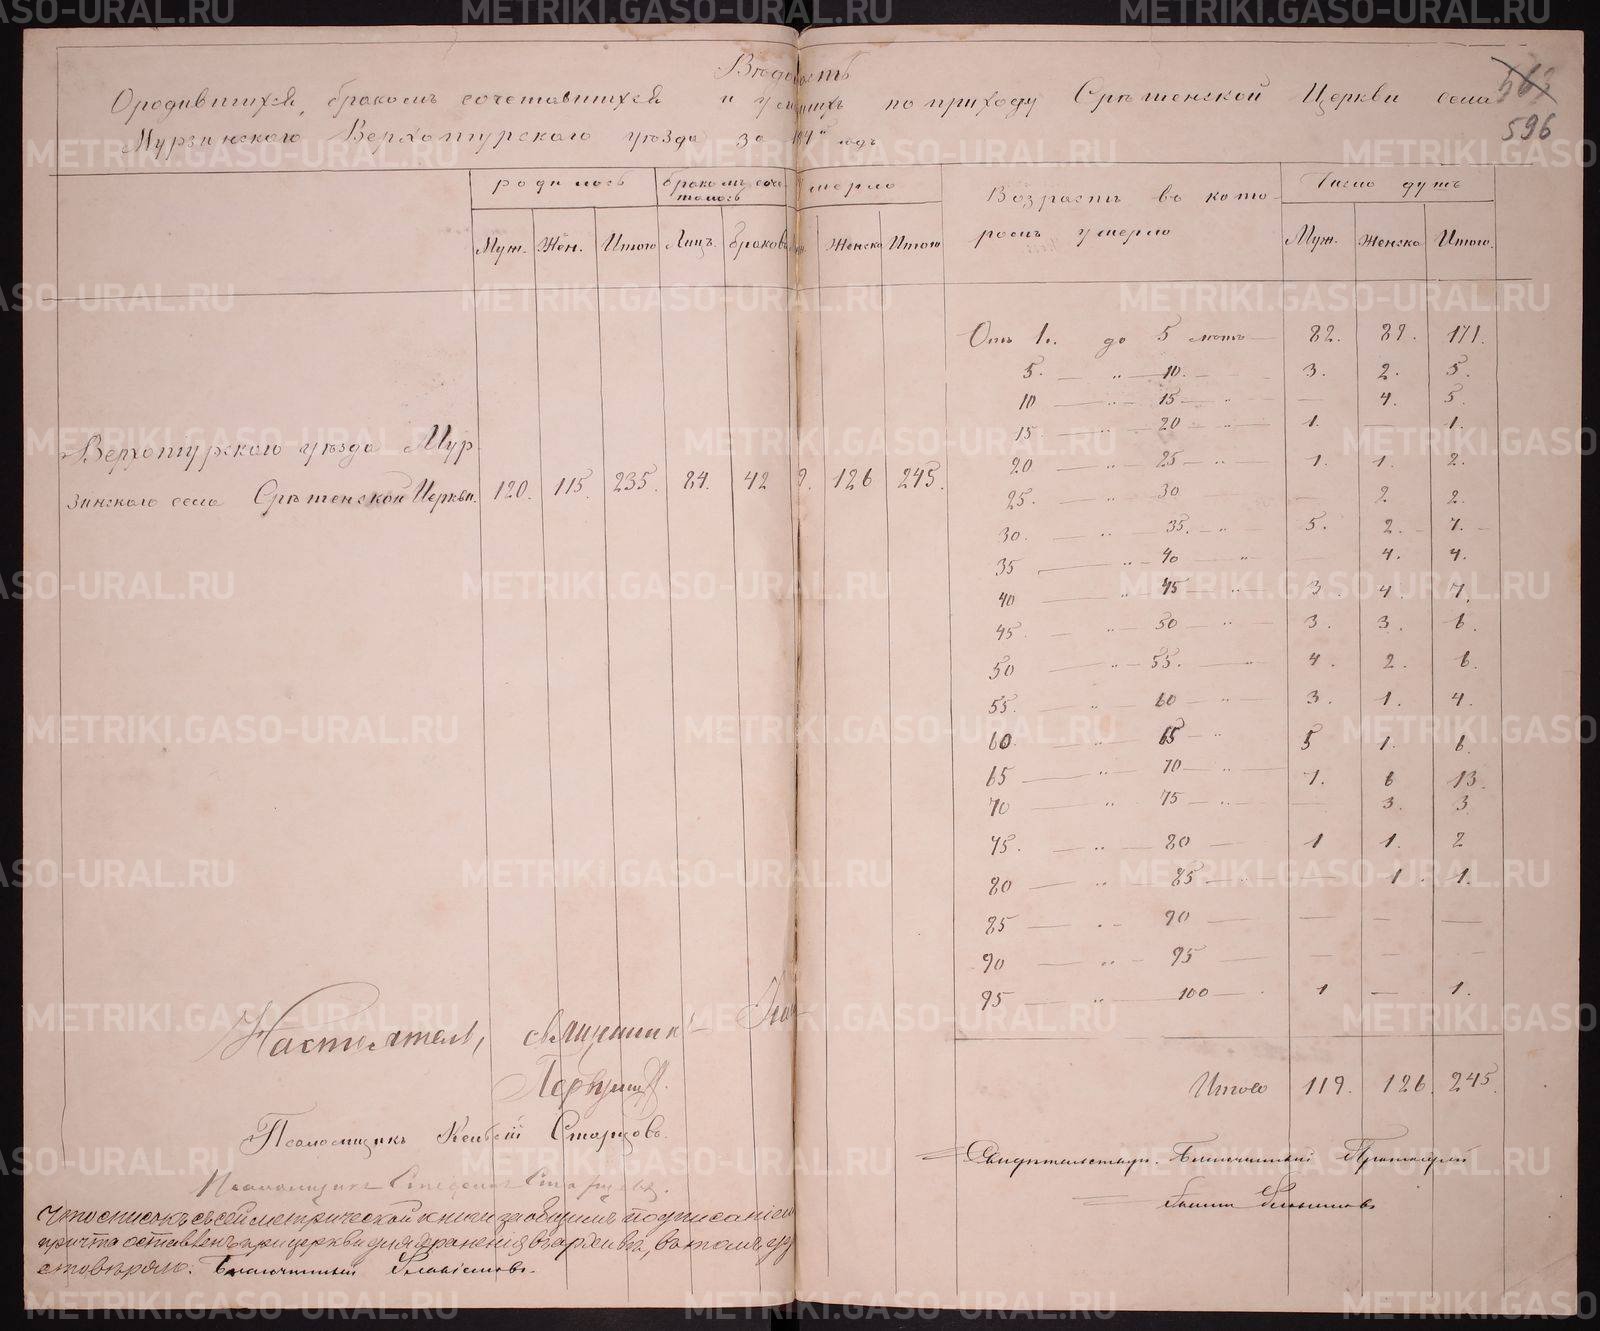 Вѣдомость
О родившихся, бракомъ сочетавшихся и умершихъ по приходу Срѣтенской Церкви села
Мурзинскаго Верхотурскаго уѣзда за годъ
563
596
родилось
бракомъ соче-
талось
умерло
Возрастъ въ кото-
ромъ умерло
Число душъ
Муж. Жен. Итого Лицъ. браковъ Женска Итого
Муж. Женска Итого.
Верхотурскаго уѣзда Мур
зинскаго села Срѣтенской Церкви. 120. 115. 235. 84. 42 9. 126 245.
Отъ 1. до 5 лѣтъ 82. 89. 171.
5. — „ — 10. 3. 2. 5.
10 — „ — 15 — 4. 5.
15. — „ 20 1. — 1.
20 — „ 25 1. 1. 2.
25. — „ 30 — 2 2.
30. — „ 35. 5. 2. 7.
35 — „ 40 — 4. 4.
40 — „ 45 3. 4. 7.
45. — „ 50 3. 3. 6.
50 — „ 55. 4. 2. 6.
55. — „ 60 3. 1. 4.
60. — „ 65 5 1. 6.
65 — „ 70 7. 6 13.
70 — „ 75 — 3. 3
75. — „ 80 1 1. 2
80 — „ 85 — 1. 1.
85 — „ 90 — — —
90 — „ 95 — — —
95 — „ 100 1 — 1.
Итого 119. 126. 245.
Настоятель, священникъ
Псаломщикъ Старцовъ.
Псаломщикъ Старцовъ.
Что списокъ съ сей метрической книги за общимъ подписаніемъ
причта оставленъ при церкви для храненія въ архивѣ, въ томъ удо
стовѣряю. Благочинный
Свидѣтельствую. Благочинный Протоіерей
METRIKI.GASO-URAL.RU